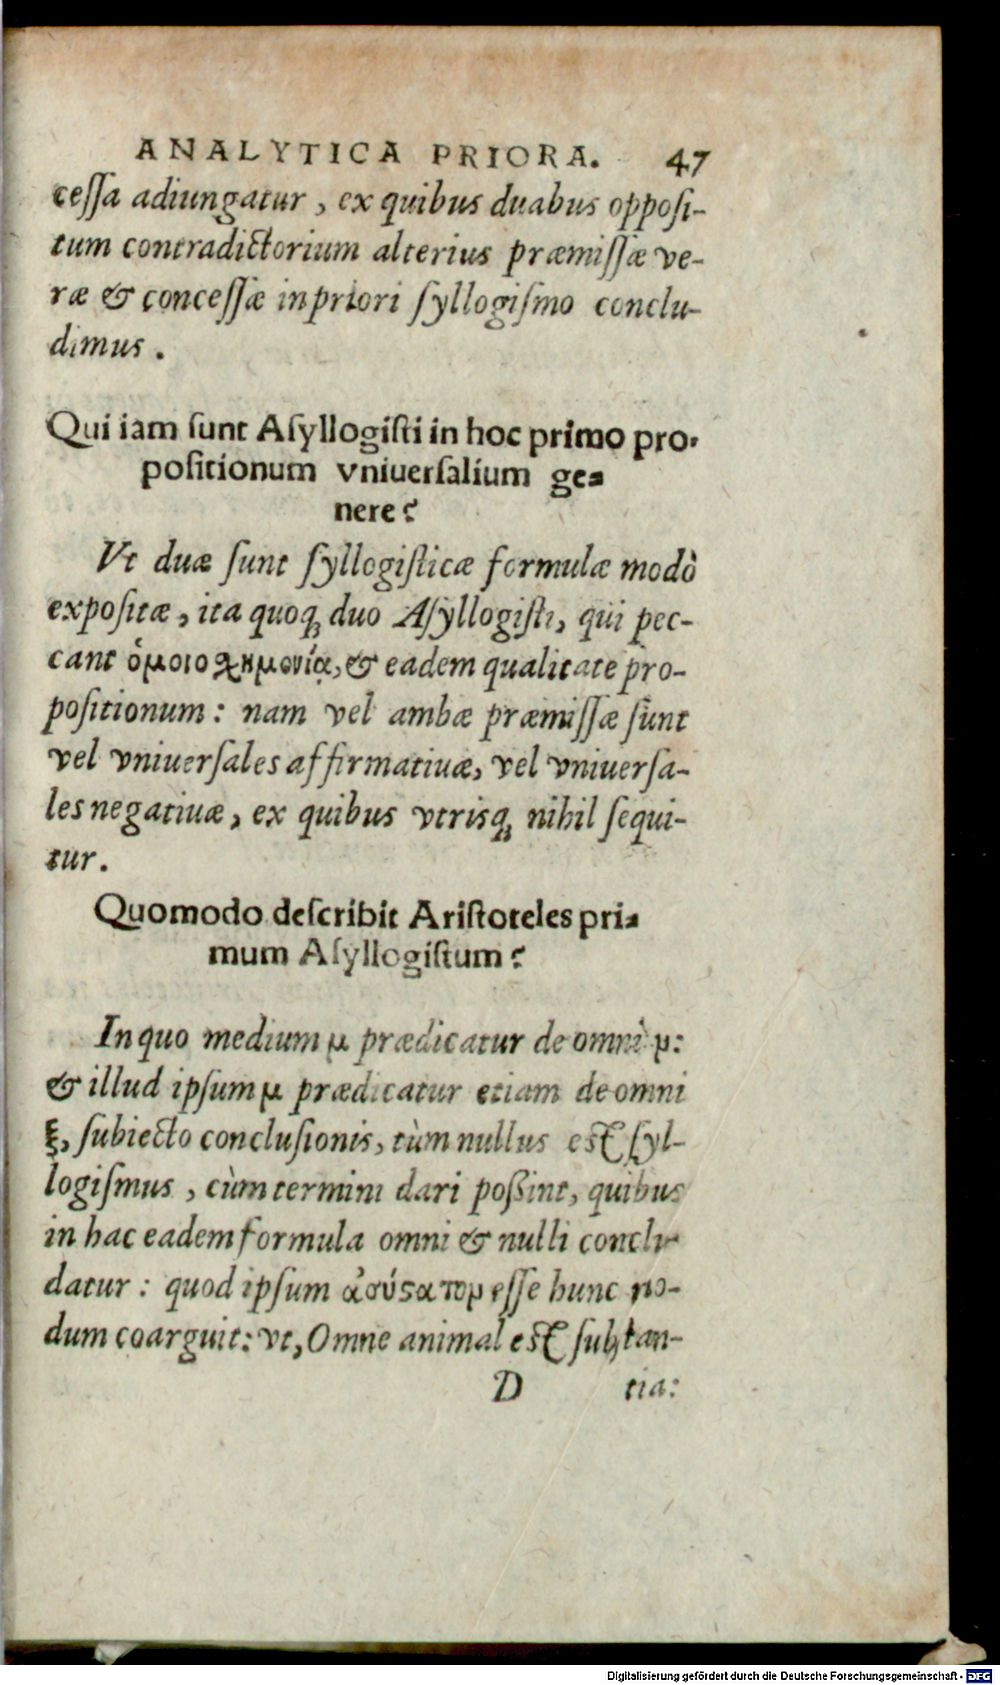 ANALYTICA PRIORA. 47
cessa adiungatur, ex quibus duabus opposi-
tum contradictorium alterius præmissæ ve-
ræ & concessæ in priori syllogismo conclu-
dimus.
Qui iam sunt Asyllogisti in hoc primo pro-
positionum vniuersalium ge-
nere?
Vt duæ sunt syllogisticæ formulæ modò
expositæ, ita quoq; duo Asyllogisti, qui pec-
cant & eadem qualitate pro-
positionum: nam vel ambæ præmissæ sunt
vel vniuersales affirmatiuæ, vel vniuersa-
les negatiuæ, ex quibus vtrisq; nihil sequi-
tur.
Quomodo describit Aristoteles pri-
mum Asyllogistum?
In quo medium μ prædicatur de omni
& illud ipsum μ prædicatur etiam de omni
ξ, subiecto conclusionis, tùm nullus est syl-
logismus, cùm termini dari possint, quibus
in hac eadem formula omni & nulli conclu-
datur: quod ipsum esse hunc mo-
dum coarguit: vt, Omne animal est substan-
D tia:
Digitalisierung gefördert durch die Deutsche Forschungsgemeinschaft - DFG